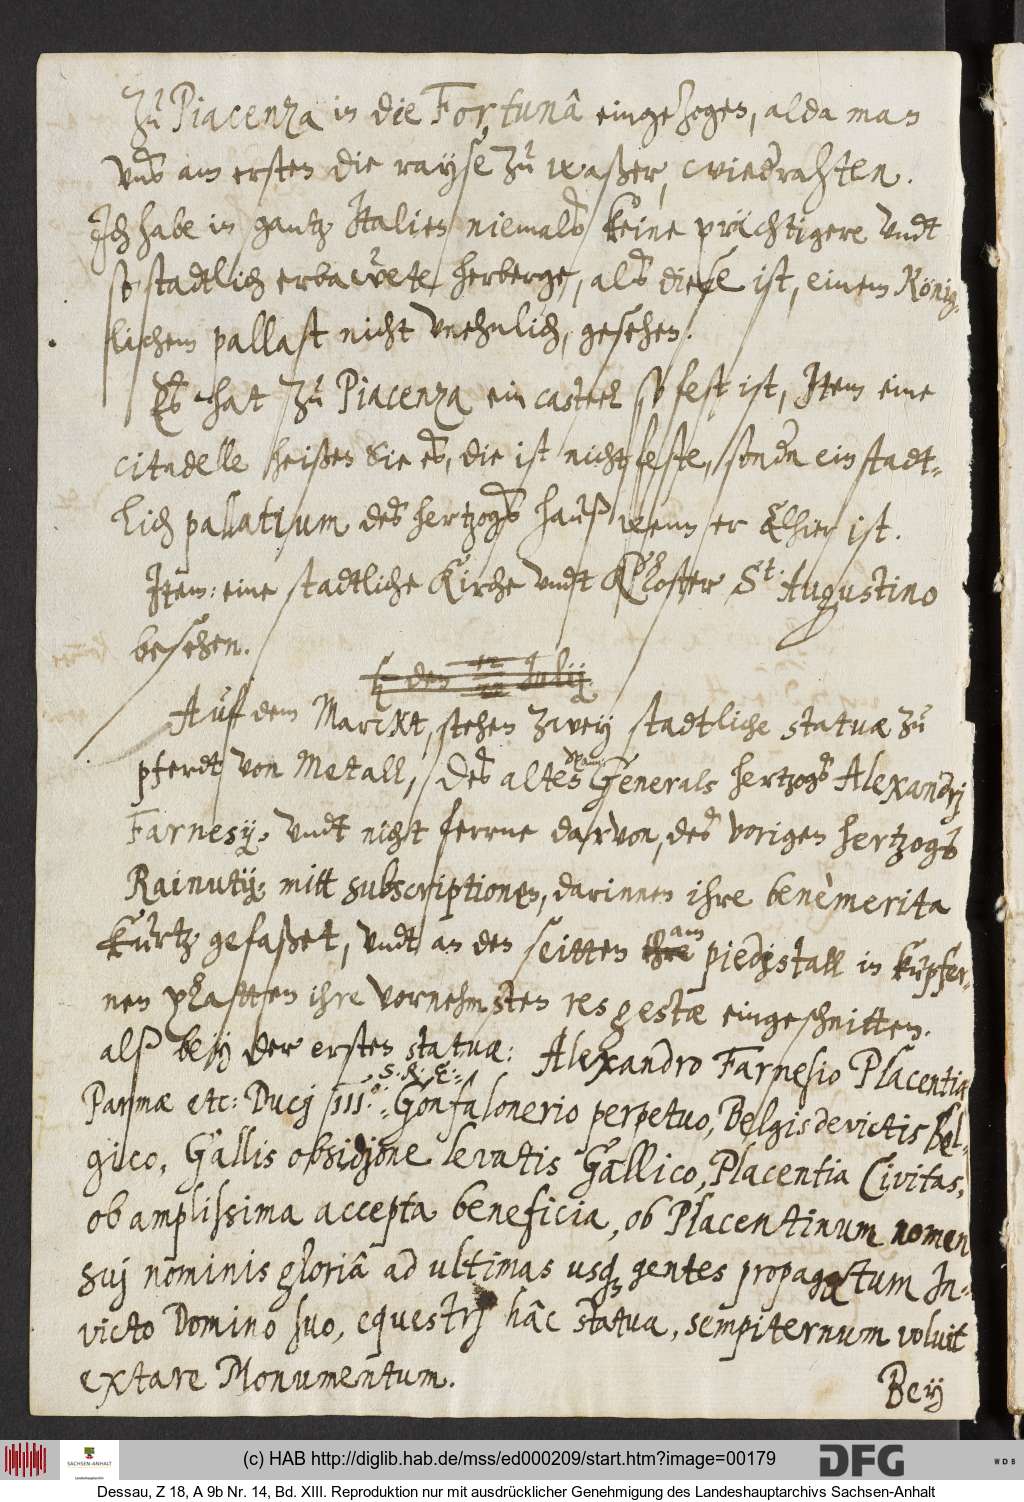 Zu Piacenza in die Fortunâ eingezogen, alda man
unß am ersten die rayse zu waßer, wiedrahten.
Ich habe in gantz Italien niemalß keine prächtigere undt
so stadtlich erbawete herberge, alß diese ist, einem König-
lichem pallast nicht unehnlich, gesehen.
Eß hat zu Piacenza ein casteel so fest ist, Item eine
citadelle heißen Sie eß, die ist nicht feste, sondn ein stadt-
lich pallatium deß hertzogß hauß wenn er Alhier ist.
Item: eine stadtliche Kirche undt Kloster St. Augustino
besehen.
♄ den 12/22 Julij.
Auf dem Marckt, stehen zwey stadtliche statuæ zu
pferdt von Metall, deß alten Generals hertzogß Alexandrj
Farnesij, undt nicht ferrne darvon, deß vorigen hertzogß
Rainutij, mitt subscriptionen, darinnen ihre benèmerita
kurtz gefaßet, undt an den seitten ihre am piedistall in kupfer-
nen plattten ihre vornehmsten res gestæ eingeschnitten.
alß bey der ersten statua: Alexandro Farnesio Placentiæ
Parmæ etc: Ducj III.º: S. R. E: Gonfalonerio perpetuo, Belgis devictis Bel-
gico, Gallis obsidione levatis Gallico, Placentia Civitas,
ob amplissima accepta beneficia, ob Placentinum nomen
suj nominis gloriâ ad ultimas usq gentes propagatum In-
victo Domino suo, equestrj hâc statua, sempiternum voluit
extare Monumentum.
Bey
(c) HAB http://diglib.hab.de/mss/ed000209/start.htm?image=00179
SACHSEN-ANHALT
DFG
WDB
Dessau, Z 18, A 9b Nr. 14, Bd. XIII. Reproduktion nur mit ausdrücklicher Genehmigung des Landeshauptarchivs Sachsen-Anhalt